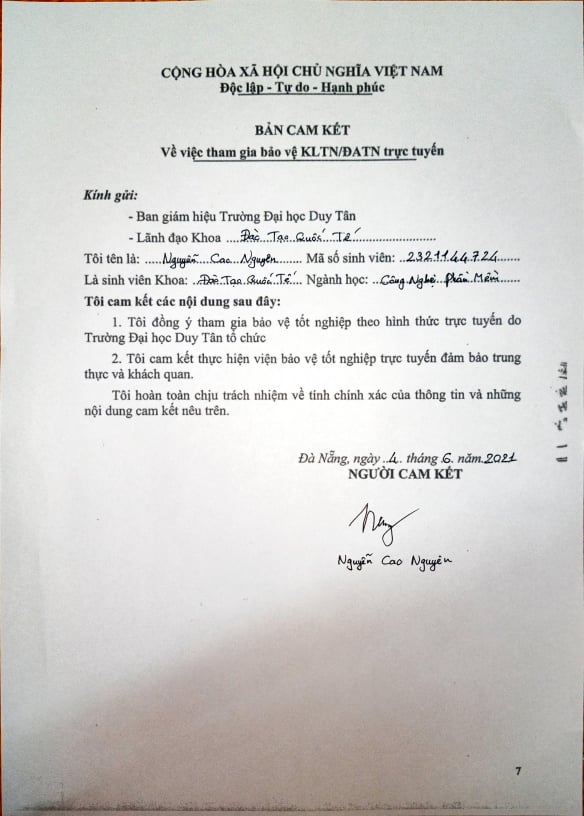 CỘNG HÒA XÃ HỘI CHỦ NGHĨA VIỆT NAM
Độc lập - Tự do - Hạnh phúc
BẢN CAM KẾT
Về việc tham gia bảo vệ KLTN/ĐATN trực tuyến
Kính gửi:
- Ban giám hiệu Trường Đại học Duy Tân
- Lãnh đạo Khoa ....Đào Tạo Quốc Tế....................
Tôi tên là: .....Nguyễn Cao Nguyên....... Mã số sinh viên: ..23211.44.724......
Là sinh viên Khoa: ..Đào Tạo Quốc Tế.. Ngành học: ..Công Nghệ Phần Mềm.....
Tôi cam kết các nội dung sau đây:
1. Tôi đồng ý tham gia bảo vệ tốt nghiệp theo hình thức trực tuyến do
Trường Đại học Duy Tân tổ chức
2. Tôi cam kết thực hiện viện bảo vệ tốt nghiệp trực tuyến đảm bảo trung
thực và khách quan.
Tôi hoàn toàn chịu trách nhiệm về tính chính xác của thông tin và những
nội dung cam kết nêu trên.
Đà Nẵng, ngày ..4. tháng .6. năm.2021
NGƯỜI CAM KẾT
Nguyễn Cao Nguyên
7